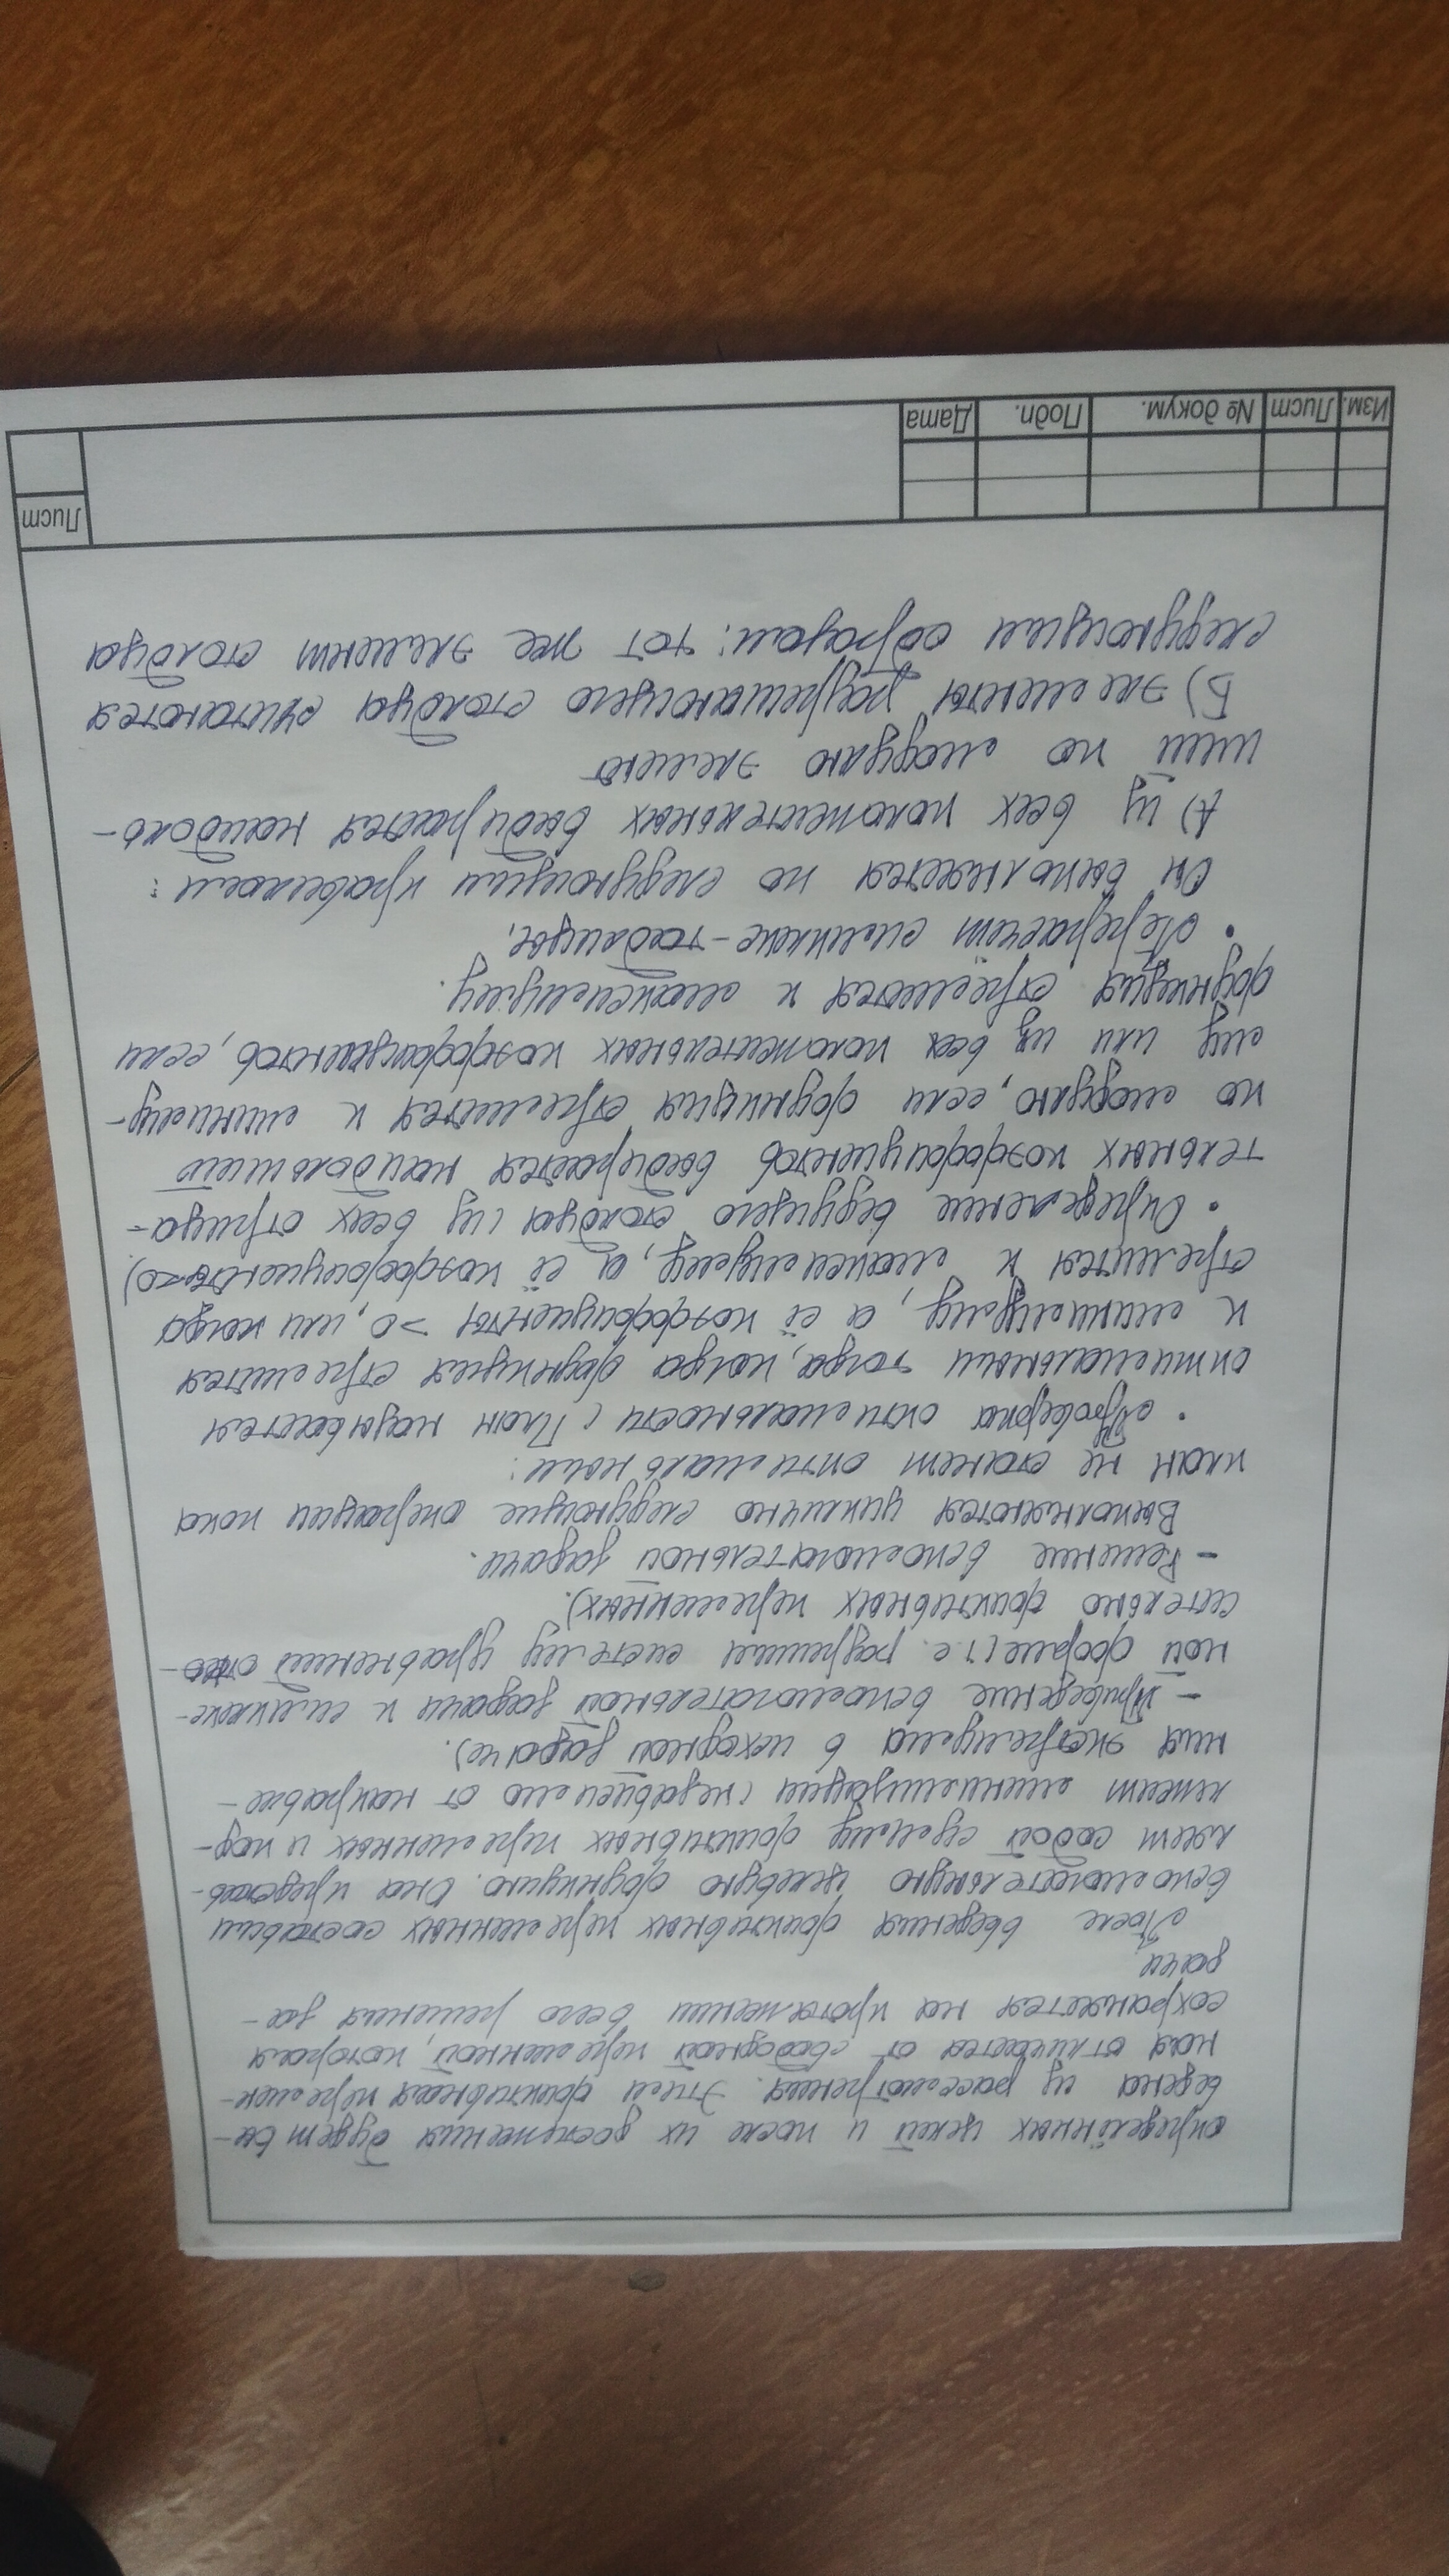 определённых целей и после их достижения будет вы-
ведена из рассмотрения. Этим фиктивная перемен-
ная отличается от свободной переменной, которая
сохраняется на протяжении всего решения за-
дачи.
После введения фиктивных переменных составим
вспомогательную целевую функцию. Она представ-
ляет собой сумму фиктивных переменных и под-
лежит минимизации (независимо от направле-
ния экстремума в исходной задаче).
- Приведение вспомогательной задачи к симплекс-
ной форме (т.е. разрешим систему уравнений отно-
сительно фиктивных переменных).
- Решение вспомогательной задачи.
Выполняются циклично следующие операции пока
план не станет оптимальным:
• Проверка оптимальности (План называется
оптимальным тогда, когда функция стремится
к минимуму, а её коэффициенты >0, или когда
стремится к максимуму, а её коэффициенты <0)
• Определение ведущего столбца (из всех отрица-
тельных коэффициентов выбирается наибольший
по модулю, если функция стремится к миниму-
му или из всех положительных коэффициентов, если
функция стремится к максимуму.
• Перерасчёт симплекс-таблицы.
Он выполняется по следующим правилам:
А) из всех положительных выбирается наиболь-
ший по модулю элемент
Б) элементы разрешающего столбца считаются
следующим образом: тот же элемент столбца
Лист
Изм. Лист № докум. Подп. Дата